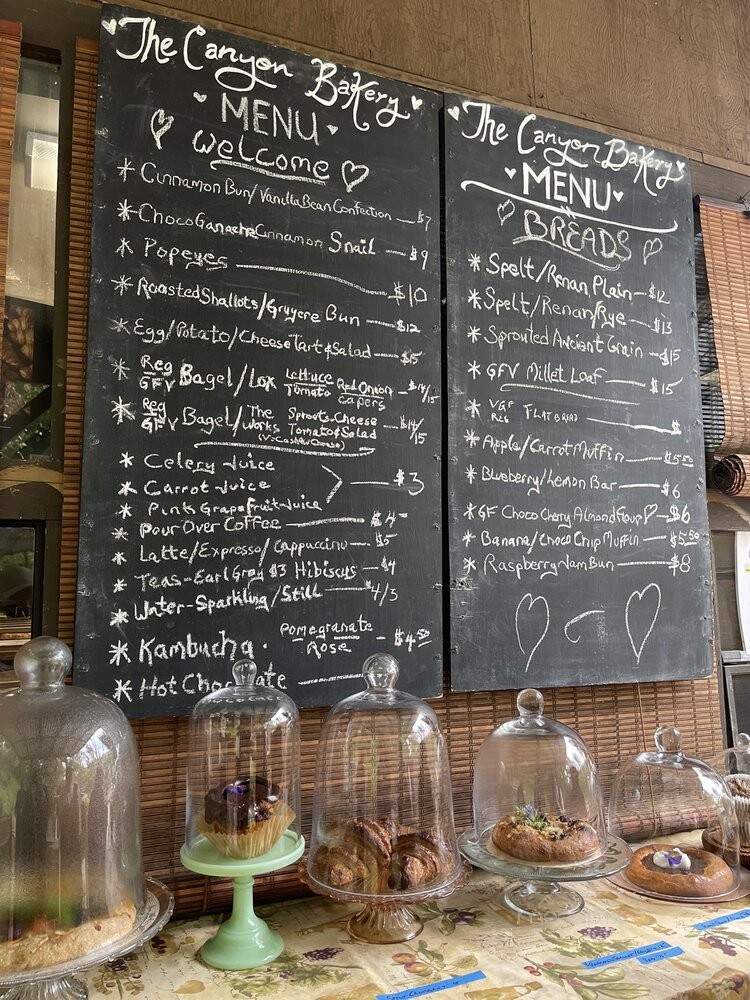 The Canyon Bakery
MENU
Welcome
* Cinnamon Bun/Vanilla Bean Confection — $7
* Choco Ganache Cinnamon Snail — $9
* Popeyes — $10
* Roasted Shallots/Gruyere Bun — $12
* Egg/Potato/Cheese Tart & Salad — $15
* Reg GFV Bagel/Lox Lettuce Tomato Red Onion Capers — $14/15
* Reg GFV Bagel/The Works Sprouts Cheese Tomato & Salad — $14/15
* Celery Juice
* Carrot Juice — $3
* Pink Grapefruit Juice
* Pour Over Coffee — $4
* Latte/Expresso/Cappuccino — $5
* Teas-Earl Grey $3 Hibiscus — $4
* Water-Sparkling/Still — 4/3
* Kambucha Pomegranate Rose — $4.50
* Hot Choc
The Canyon Bakery
MENU
BREADS
* Spelt/Renan Plain — $12
* Spelt/Renan/Rye — $13
* Sprouted Ancient Grain — $15
* GFV Millet Loaf — $15
* FLAT BREAD — $
* Apple/Carrot Muffin — $5.50
* Blueberry/Lemon Bar — $6
* GF Choco Cherry Almond — $6
* Banana/Choco Chip Muffin — $5.50
* Raspberry Jam Bun — $8